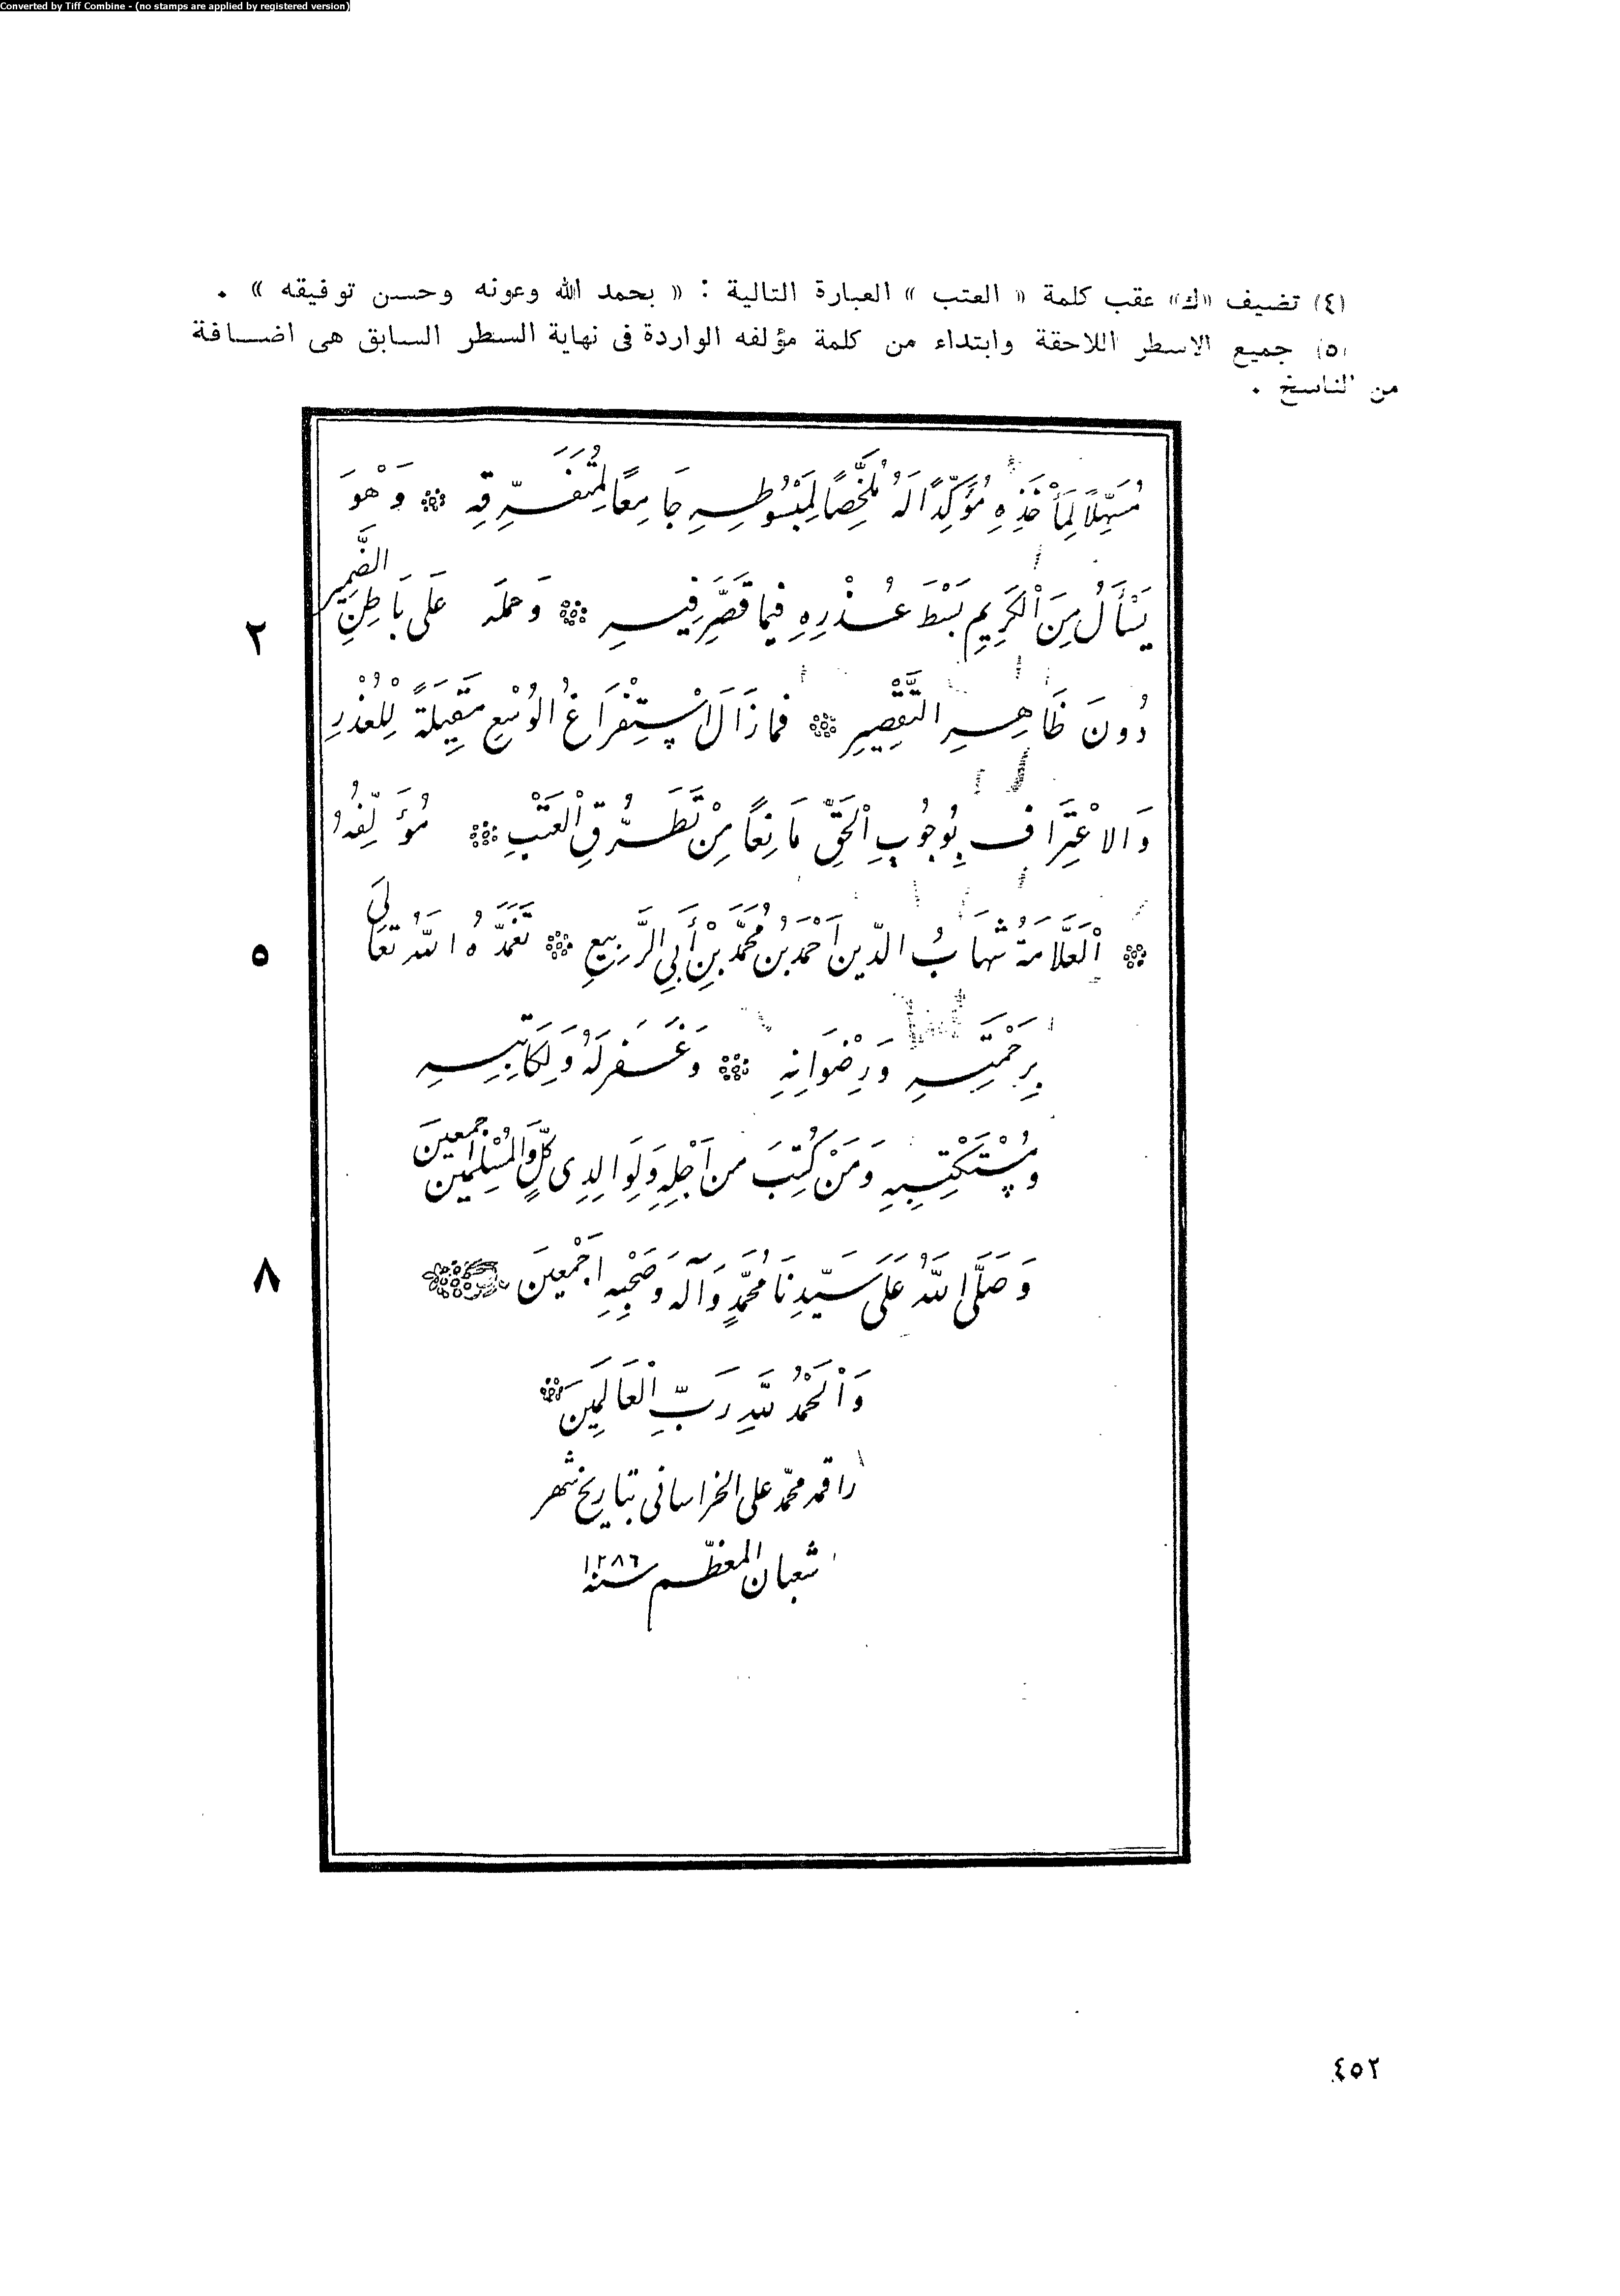 Converted by Tiff Combine - (no stamps are applied by registered version)
(٤) تضيف «ك» عقب كلمة « العتب » العبارة التالية : « بحمد الله وعونه وحسن توفيقه » .
(٥) جميع الاسطر اللاحقة وابتداء من كلمة مؤلفه الواردة فى نهاية السطر السابق هى اضافة
من الناسخ .
مُسَهِّلًا لِمَأْخَذِهِ مُؤَكِّدًا لَهُ مُلَخِّصًا لِمَبْسُوطِهِ جَامِعًا لِمُتَفَرِّقِهِ وَهْوَ
يَسْأَلُ مِنَ اْلكَرِيمِ بَسْطَ عُذْرِهِ فِيمَا قَصَّرَ فِيهِ وَحَمْلَه عَلَى بَاطِنِ الضَّمِيرِ
٢
دُونَ ظَاهِرِ التَّقْصِيرِ فمازَالَ اسْتِفْرَاغُ الوُسْعِ مُقِيلَةً لِلْعُذْرِ
وَالاعْتِرَافِ بِوُجُوبِ اْلحَقِّ مَانِعًا مِنْ تَطَرُّقِ اْلعَتْبِ مُؤَلِّفُهُ
اْلعَلَّامَةُ شَهَابُ الدّين اَحْمَدُ بْنُ مُحَمَّدَ بْنِ أَبِي الرَّبِيعِ تَغَمَّدَهُ اللهُ تَعَالَى
٥
بِرَحْمَتِهِ وَرِضْوَانِهِ وَغَفَرَ لَهُ وَلِكَاتِبِهِ
وَمُسْتَكْتِبِهِ وَمَنْ كُتِبَ من اَجْلِهِ وَلِوَالِدِى كُلٍّ وَالمُسْلِمِين اجمعينَ
وَصَلَّى اللهُ عَلَى سَيِّدِنَا مُحَمَّدٍ وَآلِهِ وَصَحْبِهِ اَجْمَعِينَ
٨
وَاْلحَمْدُ للهِ رَبِّ اْلعَالَمِينَ
راقمه محمّد على الخراسانى بتاريخ شهر
شعبان المعظّم سنة ١٢٨٦
٤٥٢